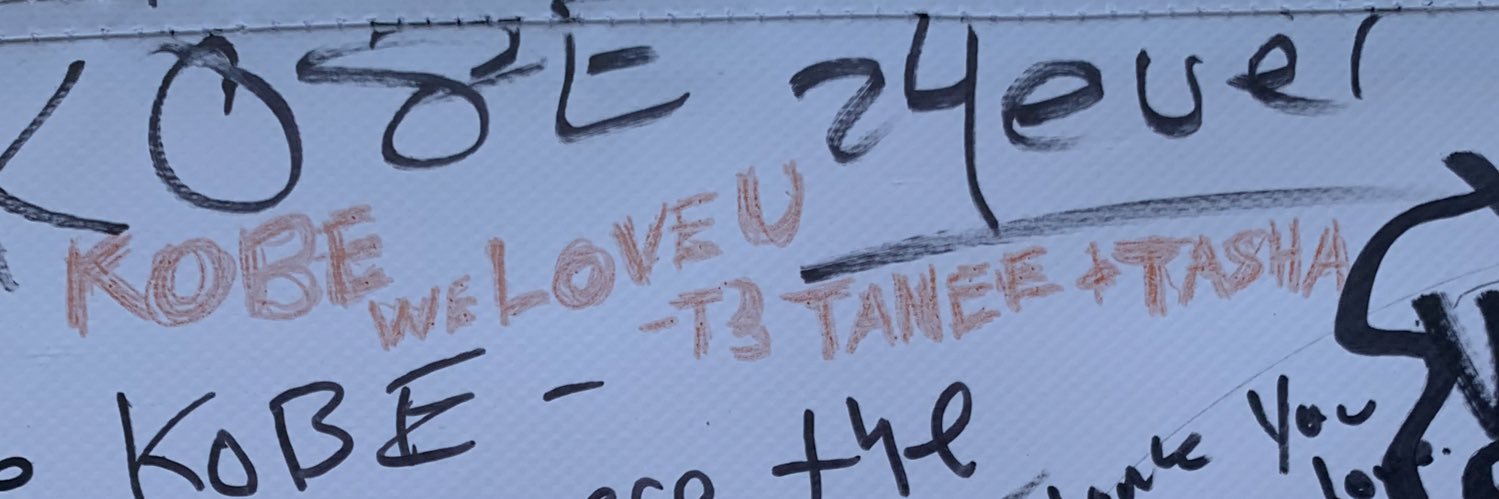 KOBE 24ever
KOBE WE LOVE U
-T3 TANEE & TASHA
KOBE -
the
You
love